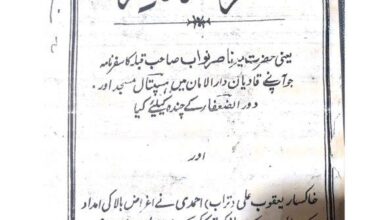 یعنی حضرت میر ناصر نواب صاحب قبلہ کا سفر نامہ
جو آپنے قادیان دارالامان میں ہسپتال مسجد اور
دور الضعفاء کے چندہ کیلئے کیا
اور
خاکسار یعقوب علی (تراب) احمدی نے اغراض بالا کی امداد